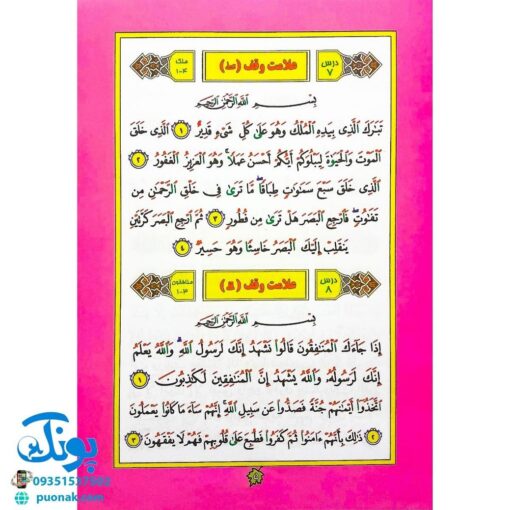 درس ۷
علامت وقف
ملک
۱-۴
بِسْمِ ٱللَّهِ ٱلرَّحْمَٰنِ ٱلرَّحِيمِ
تَبَٰرَكَ ٱلَّذِي بِيَدِهِ ٱلْمُلْكُ وَهُوَ عَلَىٰ كُلِّ شَيْءٍ قَدِيرٌ ۱ ٱلَّذِي خَلَقَ
ٱلْمَوْتَ وَٱلْحَيَوٰةَ لِيَبْلُوَكُمْ أَيُّكُمْ أَحْسَنُ عَمَلًا ۚ وَهُوَ ٱلْعَزِيزُ ٱلْغَفُورُ ۲
ٱلَّذِي خَلَقَ سَبْعَ سَمَٰوَٰتٍ طِبَاقًا ۖ مَّا تَرَىٰ فِي خَلْقِ ٱلرَّحْمَٰنِ مِن
تَفَٰوُتٍ ۖ فَٱرْجِعِ ٱلْبَصَرَ هَلْ تَرَىٰ مِن فُطُورٍ ۳ ثُمَّ ٱرْجِعِ ٱلْبَصَرَ كَرَّتَيْنِ
يَنقَلِبْ إِلَيْكَ ٱلْبَصَرُ خَاسِئًا وَهُوَ حَسِيرٌ ۴
درس ۸
علامت وقف
منافقون
۱-۳
بِسْمِ ٱللَّهِ ٱلرَّحْمَٰنِ ٱلرَّحِيمِ
إِذَا جَآءَكَ ٱلْمُنَٰفِقُونَ قَالُوا۟ نَشْهَدُ إِنَّكَ لَرَسُولُ ٱللَّهِ ۗ وَٱللَّهُ يَعْلَمُ
إِنَّكَ لَرَسُولُهُۥ وَٱللَّهُ يَشْهَدُ إِنَّ ٱلْمُنَٰفِقِينَ لَكَٰذِبُونَ ۱
ٱتَّخَذُوٓا۟ أَيْمَٰنَهُمْ جُنَّةً فَصَدُّوا۟ عَن سَبِيلِ ٱللَّهِ ۚ إِنَّهُمْ سَآءَ مَا كَانُوا۟ يَعْمَلُونَ
۲ ذَٰلِكَ بِأَنَّهُمْ ءَامَنُوا۟ ثُمَّ كَفَرُوا۟ فَطُبِعَ عَلَىٰ قُلُوبِهِمْ فَهُمْ لَا يَفْقَهُونَ ۳
پونک
puonak.com